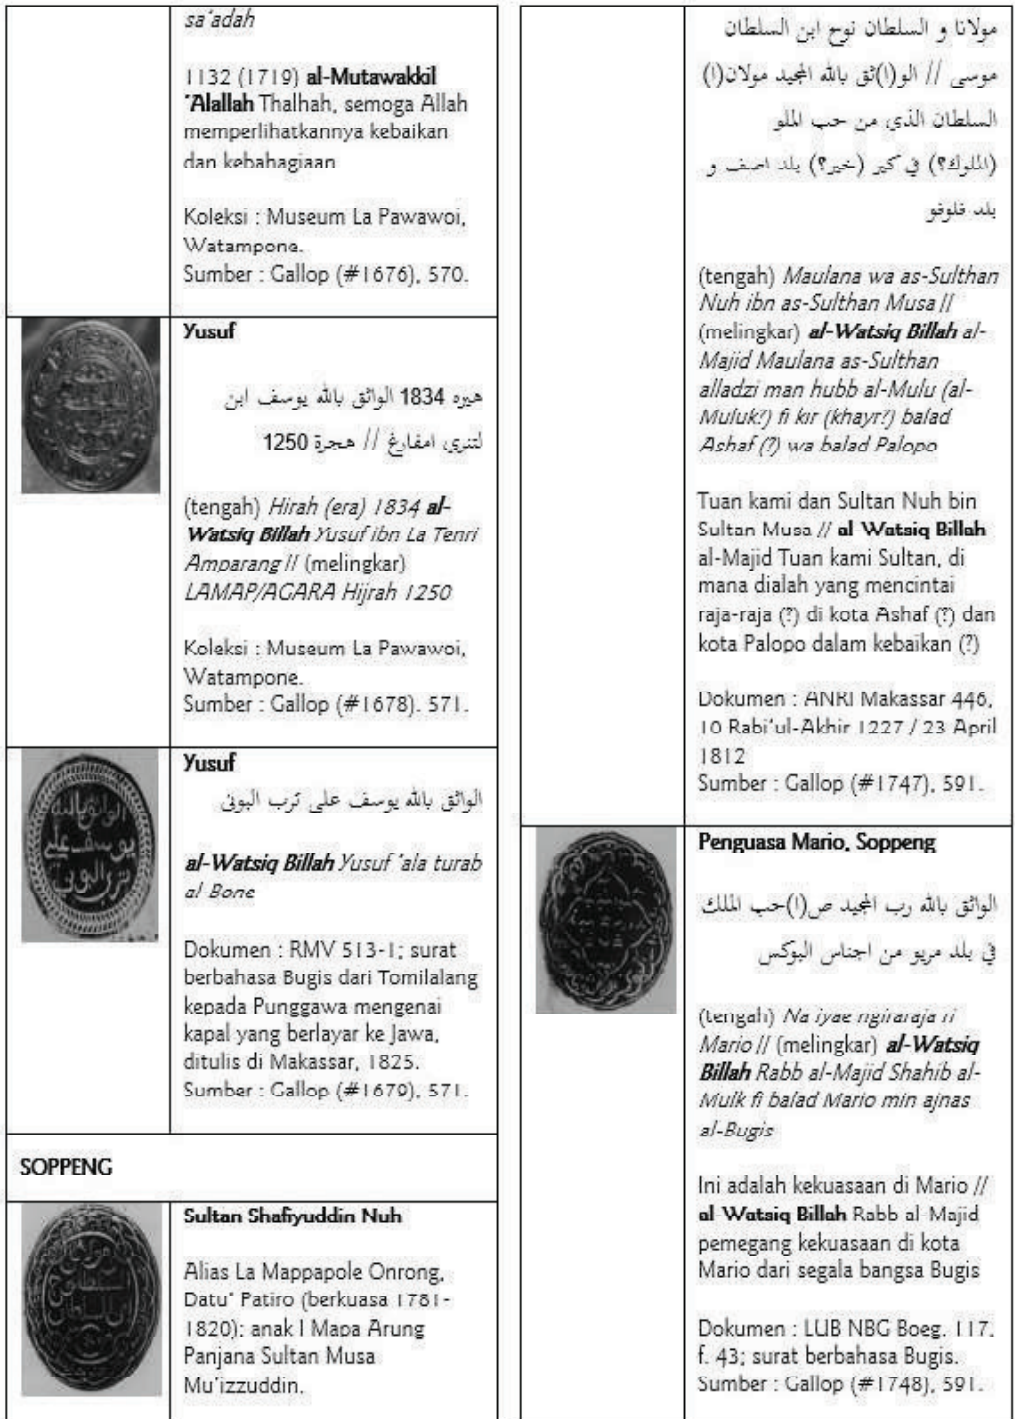 sa'adah
1132 (1719) al-Mutawakkil
'Alallah Thalhah, semoga Allah
memperlihatkannya kebaikan
dan kebahagiaan
Koleksi : Museum La Pawawoi,
Watampone.
Sumber : Gallop (#1676), 570.
Yusuf
هيره 1834 الواثق بالله يوسف ابن
لتنري امفارغ // هجرة 1250
(tengah) Hirah (era) 1834 al-
Watsiq Billah Yusuf ibn La Tenri
Amparang // (melingkar)
LAMAP/AGARA Hijrah 1250
Koleksi : Museum La Pawawoi,
Watampone.
Sumber : Gallop (#1678). 571.
Yusuf
الواثق بالله يوسف على ترب البونى
al-Watsiq Billah Yusuf 'ala turab
al Bone
Dokumen : RMV 513-1; surat
berbahasa Bugis dari Tomilalang
kepada Punggawa mengenai
kapal yang berlayar ke Jawa,
ditulis di Makassar, 1825.
Sumber : Gallop (#1679), 571.
SOPPENG
Sultan Shafiyuddin Nuh
Alias La Mappapole Onrong,
Datu' Patiro (berkuasa 1781-
1820); anak I Mapa Arung
Panjana Sultan Musa
Mu'izzuddin.
مولانا و السلطان نوح ابن السلطان
موسى // الو(ا)ثق بالله المجيد مولان(ا)
السلطان الذي من حب الملو
(الملوك؟) في كير (خير؟) بلد اصف و
بلد فلوفو
(tengah) Maulana wa as-Sulthan
Nuh ibn as-Sulthan Musa //
(melingkar) al-Watsiq Billah al-
Majid Maulana as-Sulthan
alladzi man hubb al-Mulu (al-
Muluk?) fi kir (khayr?) balad
Ashaf (?) wa balad Palopo
Tuan kami dan Sultan Nuh bin
Sultan Musa // al Watsiq Billah
al-Majid Tuan kami Sultan, di
mana dialah yang mencintai
raja-raja (?) di kota Ashaf (?) dan
kota Palopo dalam kebaikan (?)
Dokumen : ANRI Makassar 446,
10 Rabi'ul-Akhir 1227 / 23 April
1812
Sumber : Gallop (#1747), 591.
Penguasa Mario, Soppeng
الواثق بالله رب المجيد ص(ا)حب الملك
في بلد مريو من اجناس البوكس
(tengah) Na iyae ngitaraja ri
Mario // (melingkar) al-Watsiq
Billah Rabb al-Majid Shahib al-
Mulk fi balad Mario min ajnas
al-Bugis
Ini adalah kekuasaan di Mario //
al Watsiq Billah Rabb al Majid
pemegang kekuasaan di kota
Mario dari segala bangsa Bugis
Dokumen : LUB NBG Boeg. 117,
f. 43; surat berbahasa Bugis.
Sumber : Gallop (#1748), 591.